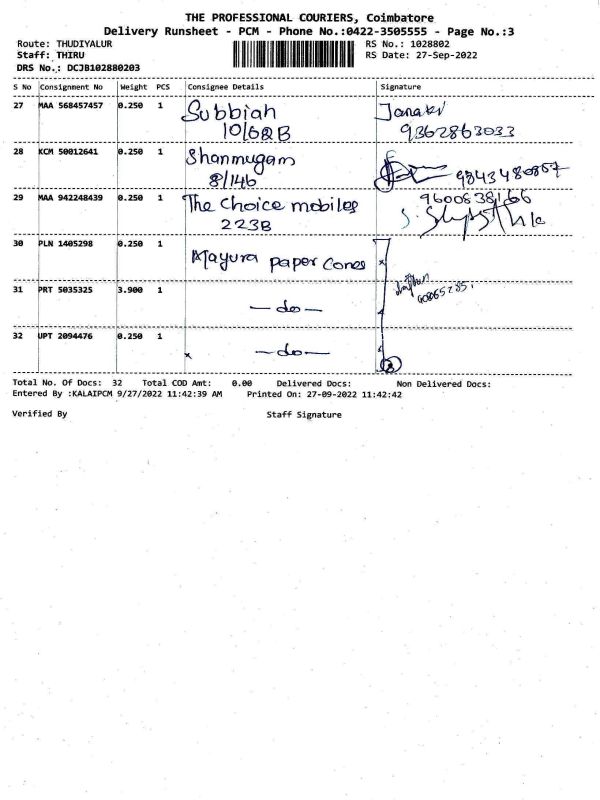 THE PROFESSIONAL COURIERS, Coimbatore
Delivery Runsheet - PCM - Phone No.:0422-3505555 - Page No.:3
Route: THUDIYALUR RS No.: 1028802
Staff: THIRU RS Date: 27-Sep-2022
DRS No.: DCJB102880203
S No Consignment No Weight PCS Consignee Details Signature
27 MAA 568457457 0.250 1 Subbiah Janaki
10/62B 9362863033
28 KCM 50012641 0.250 1 Shanmugam
8/146
29 MAA 942248439 0.250 1 The Choice mobiles
223B
30 PLN 1405298 0.250 1 Mayura paper cones
31 PRT 5035325 3.900 1 -do-
32 UPT 2094476 0.250 1 -do-
3
Total No. Of Docs: 32 Total COD Amt: 0.00 Delivered Docs: Non Delivered Docs:
Entered By :KALAIPCM 9/27/2022 11:42:39 AM Printed On: 27-09-2022 11:42:42
Verified By Staff Signature